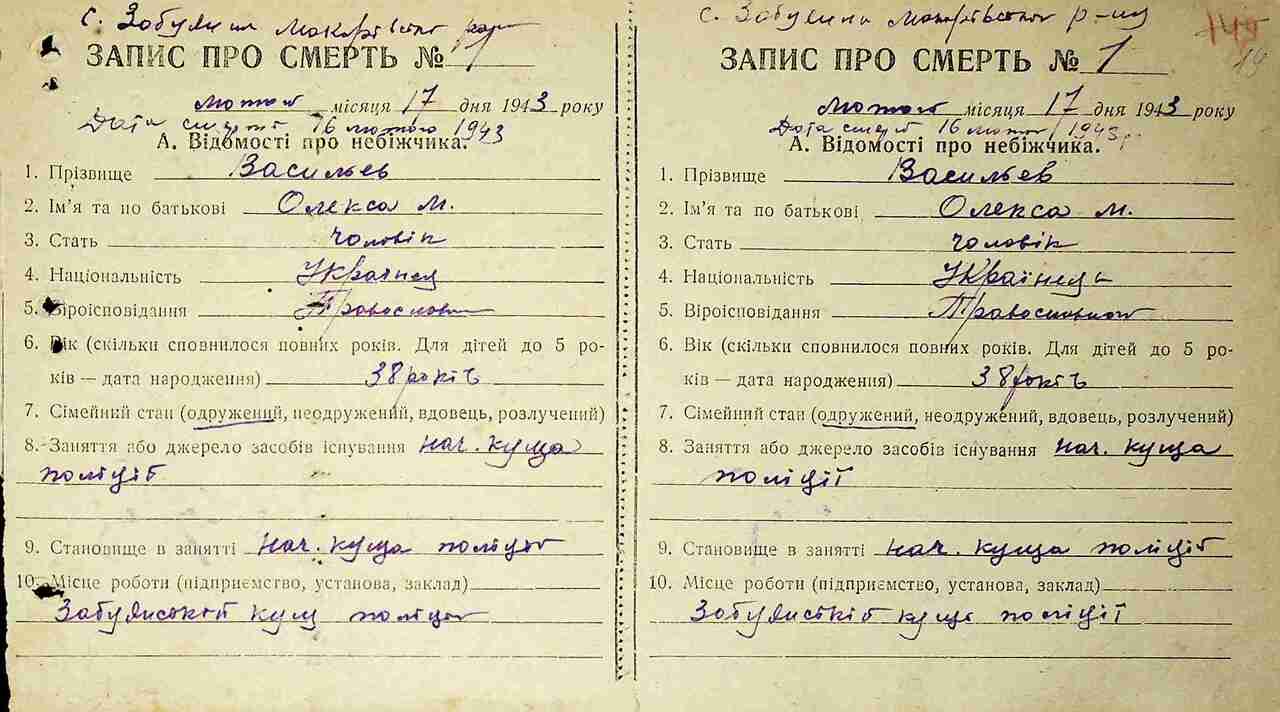 с. Забуяння Макарівського р-ну
ЗАПИС ПРО СМЕРТЬ № 1
лютого місяця 17 дня 1943 року
Дата смерті 16 лютого 1943
А. Відомості про небіжчика.
1. Прізвище Васильєв
2. Ім'я та по батькові Олекса М.
3. Стать чоловік
4. Національність Українец
5. Віроісповідання Православн
6. Вік (скільки сповнилося повних років. Для дітей до 5 ро-
ків — дата народження) 38 років
7. Сімейний стан (одружений, неодружений, вдовець, розлучений)
8. Заняття або джерело засобів існування нач. куща
поліції
9. Становище в занятті нач. куща поліції
10. Місце роботи (підприємство, установа, заклад)
Забуянський кущ поліції
с. Забуяння Макарівського р-ну
149
19
ЗАПИС ПРО СМЕРТЬ № 1
лютого місяця 17 дня 1943 року
Дата смерті 16 лютого 1943 р.
А. Відомості про небіжчика.
1. Прізвище Васильєв
2. Ім'я та по батькові Олекса М.
3. Стать чоловік
4. Національність Українець
5. Віроісповідання Православной
6. Вік (скільки сповнилося повних років. Для дітей до 5 ро-
ків — дата народження) 38 років
7. Сімейний стан (одружений, неодружений, вдовець, розлучений)
8. Заняття або джерело засобів існування нач. куща
поліції
9. Становище в занятті нач. куща поліції
10. Місце роботи (підприємство, установа, заклад)
Забуянській кущ поліції